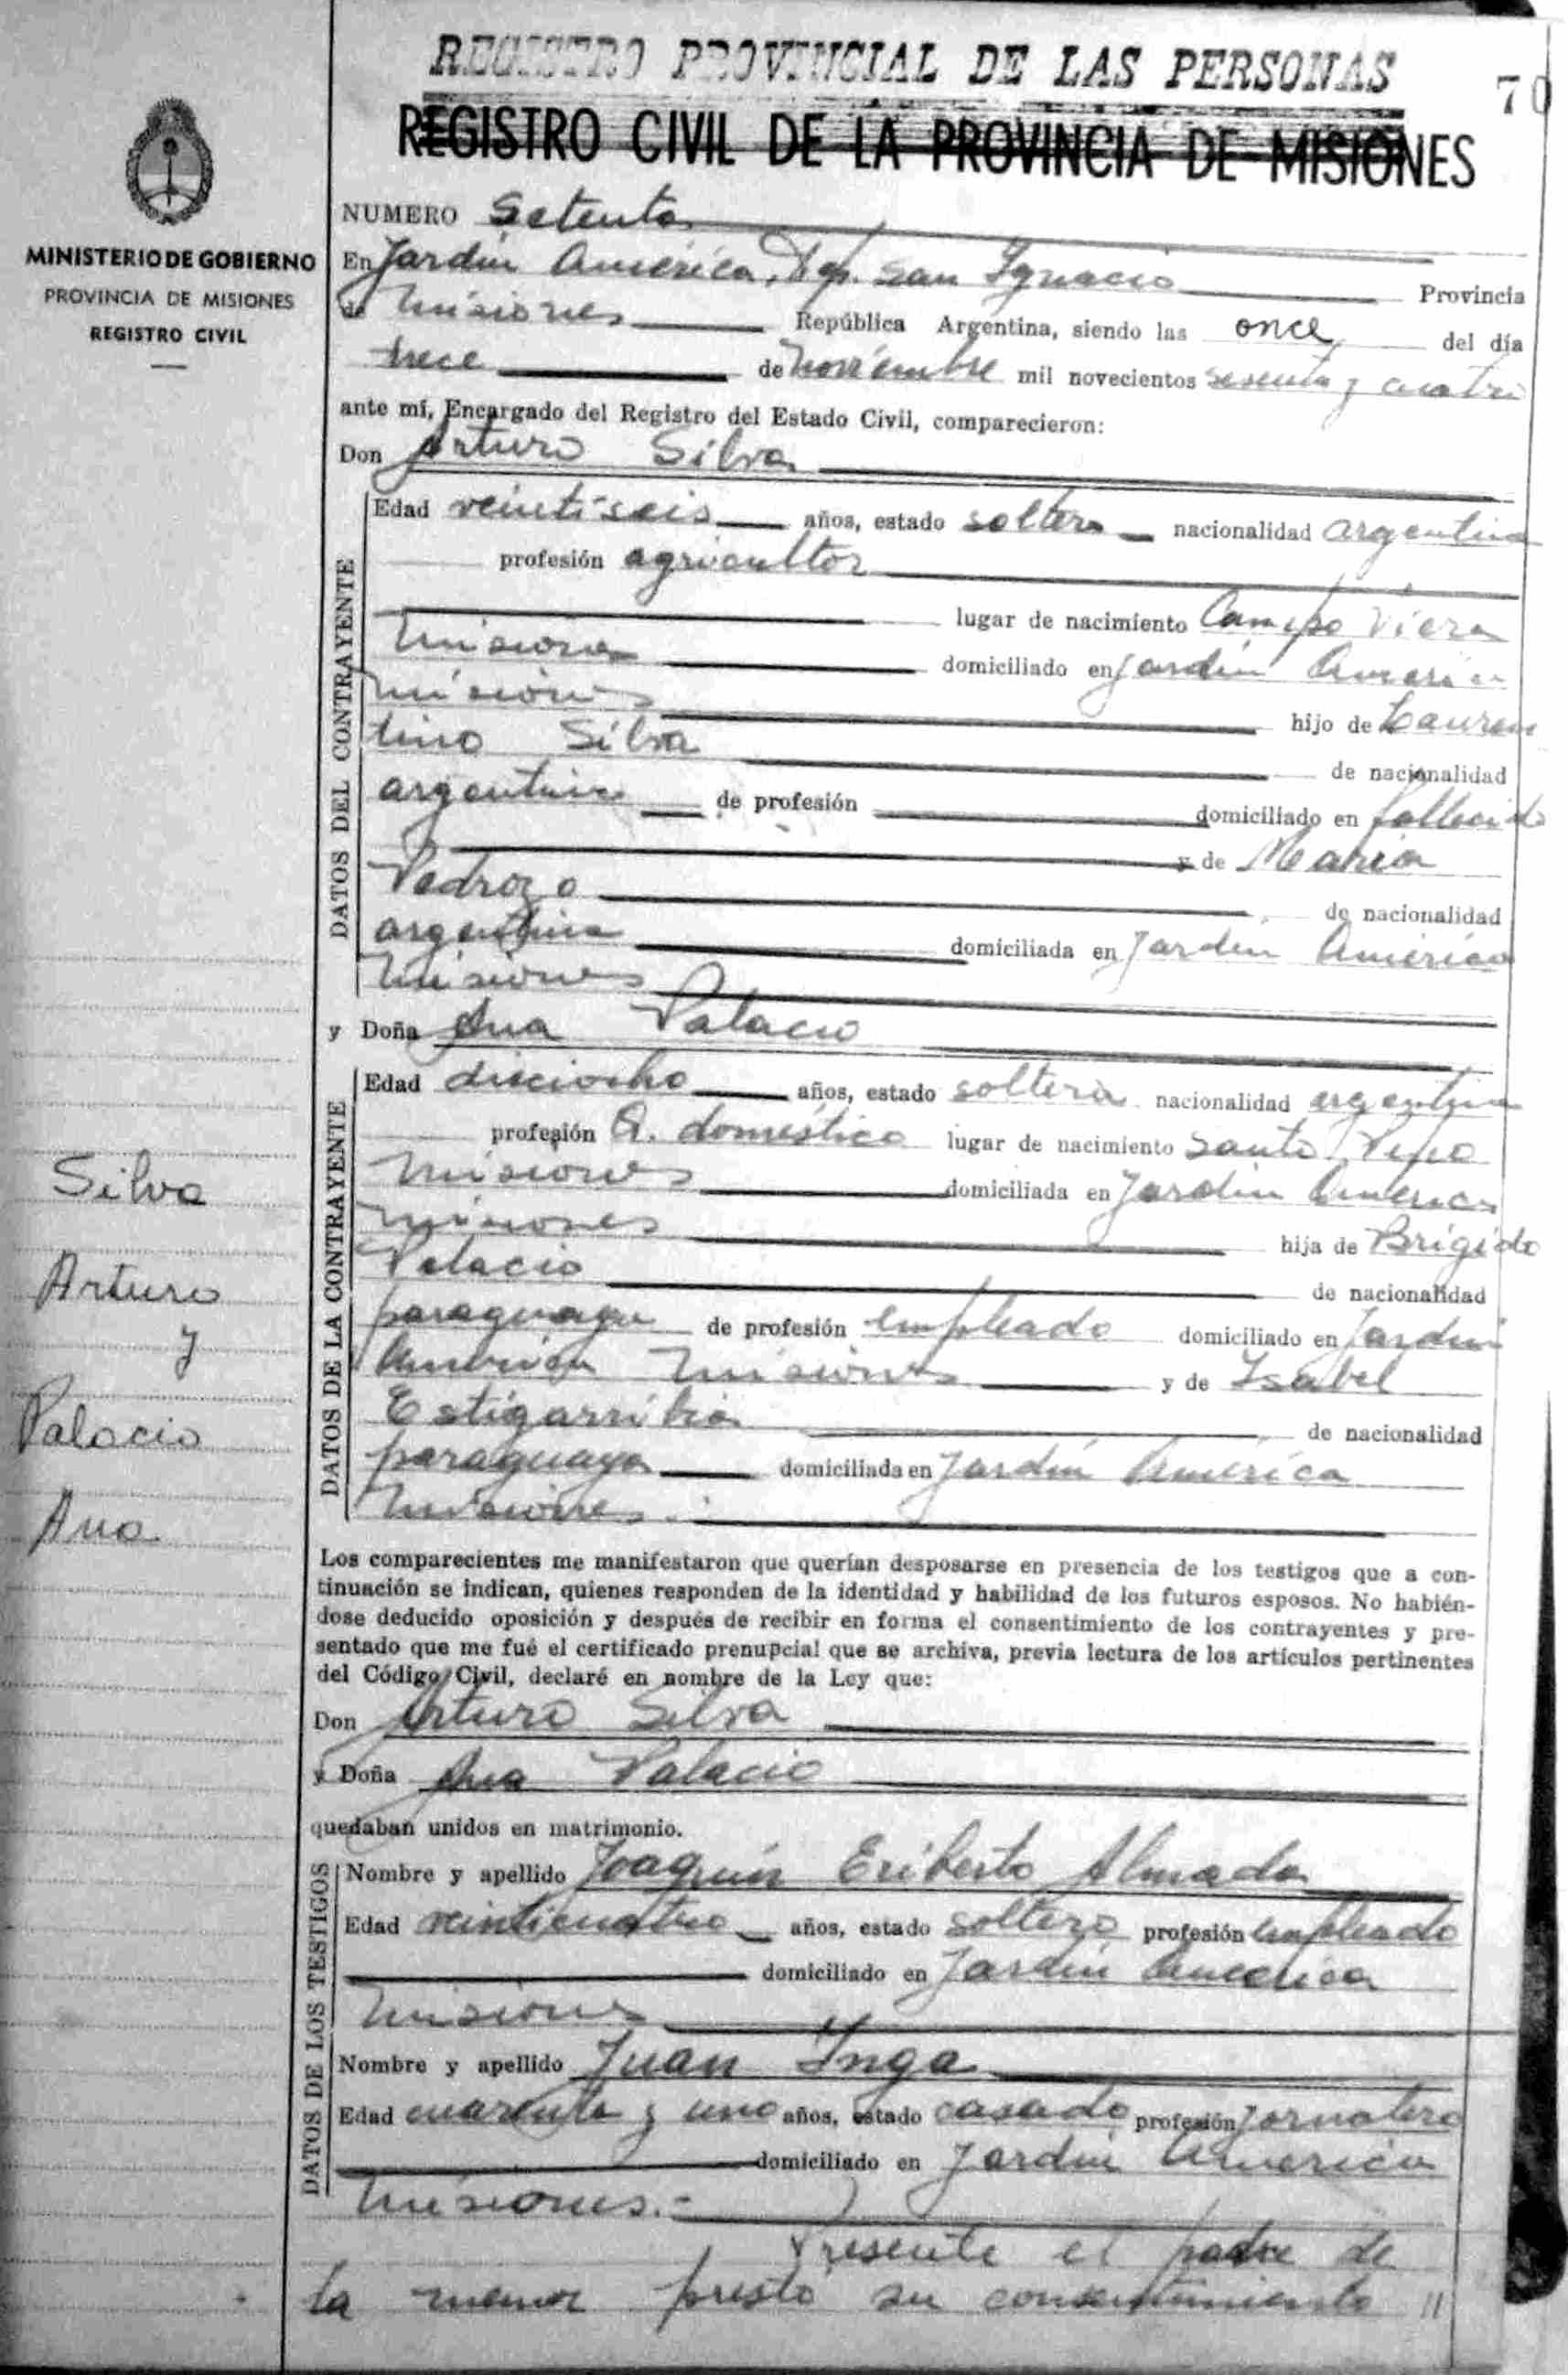 REGISTRO PROVINCIAL DE LAS PERSONAS
70
REGISTRO CIVIL DE LA PROVINCIA DE MISIONES
MINISTERIO DE GOBIERNO
PROVINCIA DE MISIONES
REGISTRO CIVIL
NUMERO Setenta
En Jardín América, Dep. San Ignacio Provincia
de Misiones República Argentina, siendo las once del día
trece de noviembre mil novecientos sesenta y cuatro
ante mí, Encargado del Registro del Estado Civil, comparecieron:
Don Arturo Silva
DATOS DEL CONTRAYENTE
Edad veintiseis años, estado soltero nacionalidad argentina
profesión agricultor
lugar de nacimiento Campo Viera
Misiones domiciliado en Jardín América
Misiones hijo de Lauren
tino Silva de nacionalidad
argentina de profesión domiciliado en fallecido
y de María
Pedrozo de nacionalidad
argentina domiciliada en Jardín América
Misiones
y Doña Ana Palacio
DATOS DE LA CONTRAYENTE
Edad dieciocho años, estado soltera nacionalidad argentina
profesión Q. doméstico lugar de nacimiento Santo Pipó
Misiones domiciliada en Jardín América
Misiones hija de Brígido
Palacio de nacionalidad
paraguaya de profesión empleado domiciliado en Jardín
América Misiones y de Isabel
Estigarribia de nacionalidad
paraguaya domiciliada en Jardín América
Misiones.
Silva
Arturo
y
Palacio
Ana
Los comparecientes me manifestaron que querían desposarse en presencia de los testigos que a con-
tinuación se indican, quienes responden de la identidad y habilidad de los futuros esposos. No habién-
dose deducido oposición y después de recibir en forma el consentimiento de los contrayentes y pre-
sentado que me fué el certificado prenupcial que se archiva, previa lectura de los artículos pertinentes
del Código Civil, declaré en nombre de la Ley que:
Don Arturo Silva
y Doña Ana Palacio
quedaban unidos en matrimonio.
DATOS DE LOS TESTIGOS
Nombre y apellido Joaquín Eriberto Almada
Edad veinticuatro años, estado soltero profesión empleado
domiciliado en Jardín América
Misiones
Nombre y apellido Juan Inga
Edad cuarenta y uno años, estado casado profesión jornalero
domiciliado en Jardín América
Misiones.-
Presente el padre de
la menor prestó su consentimiento //